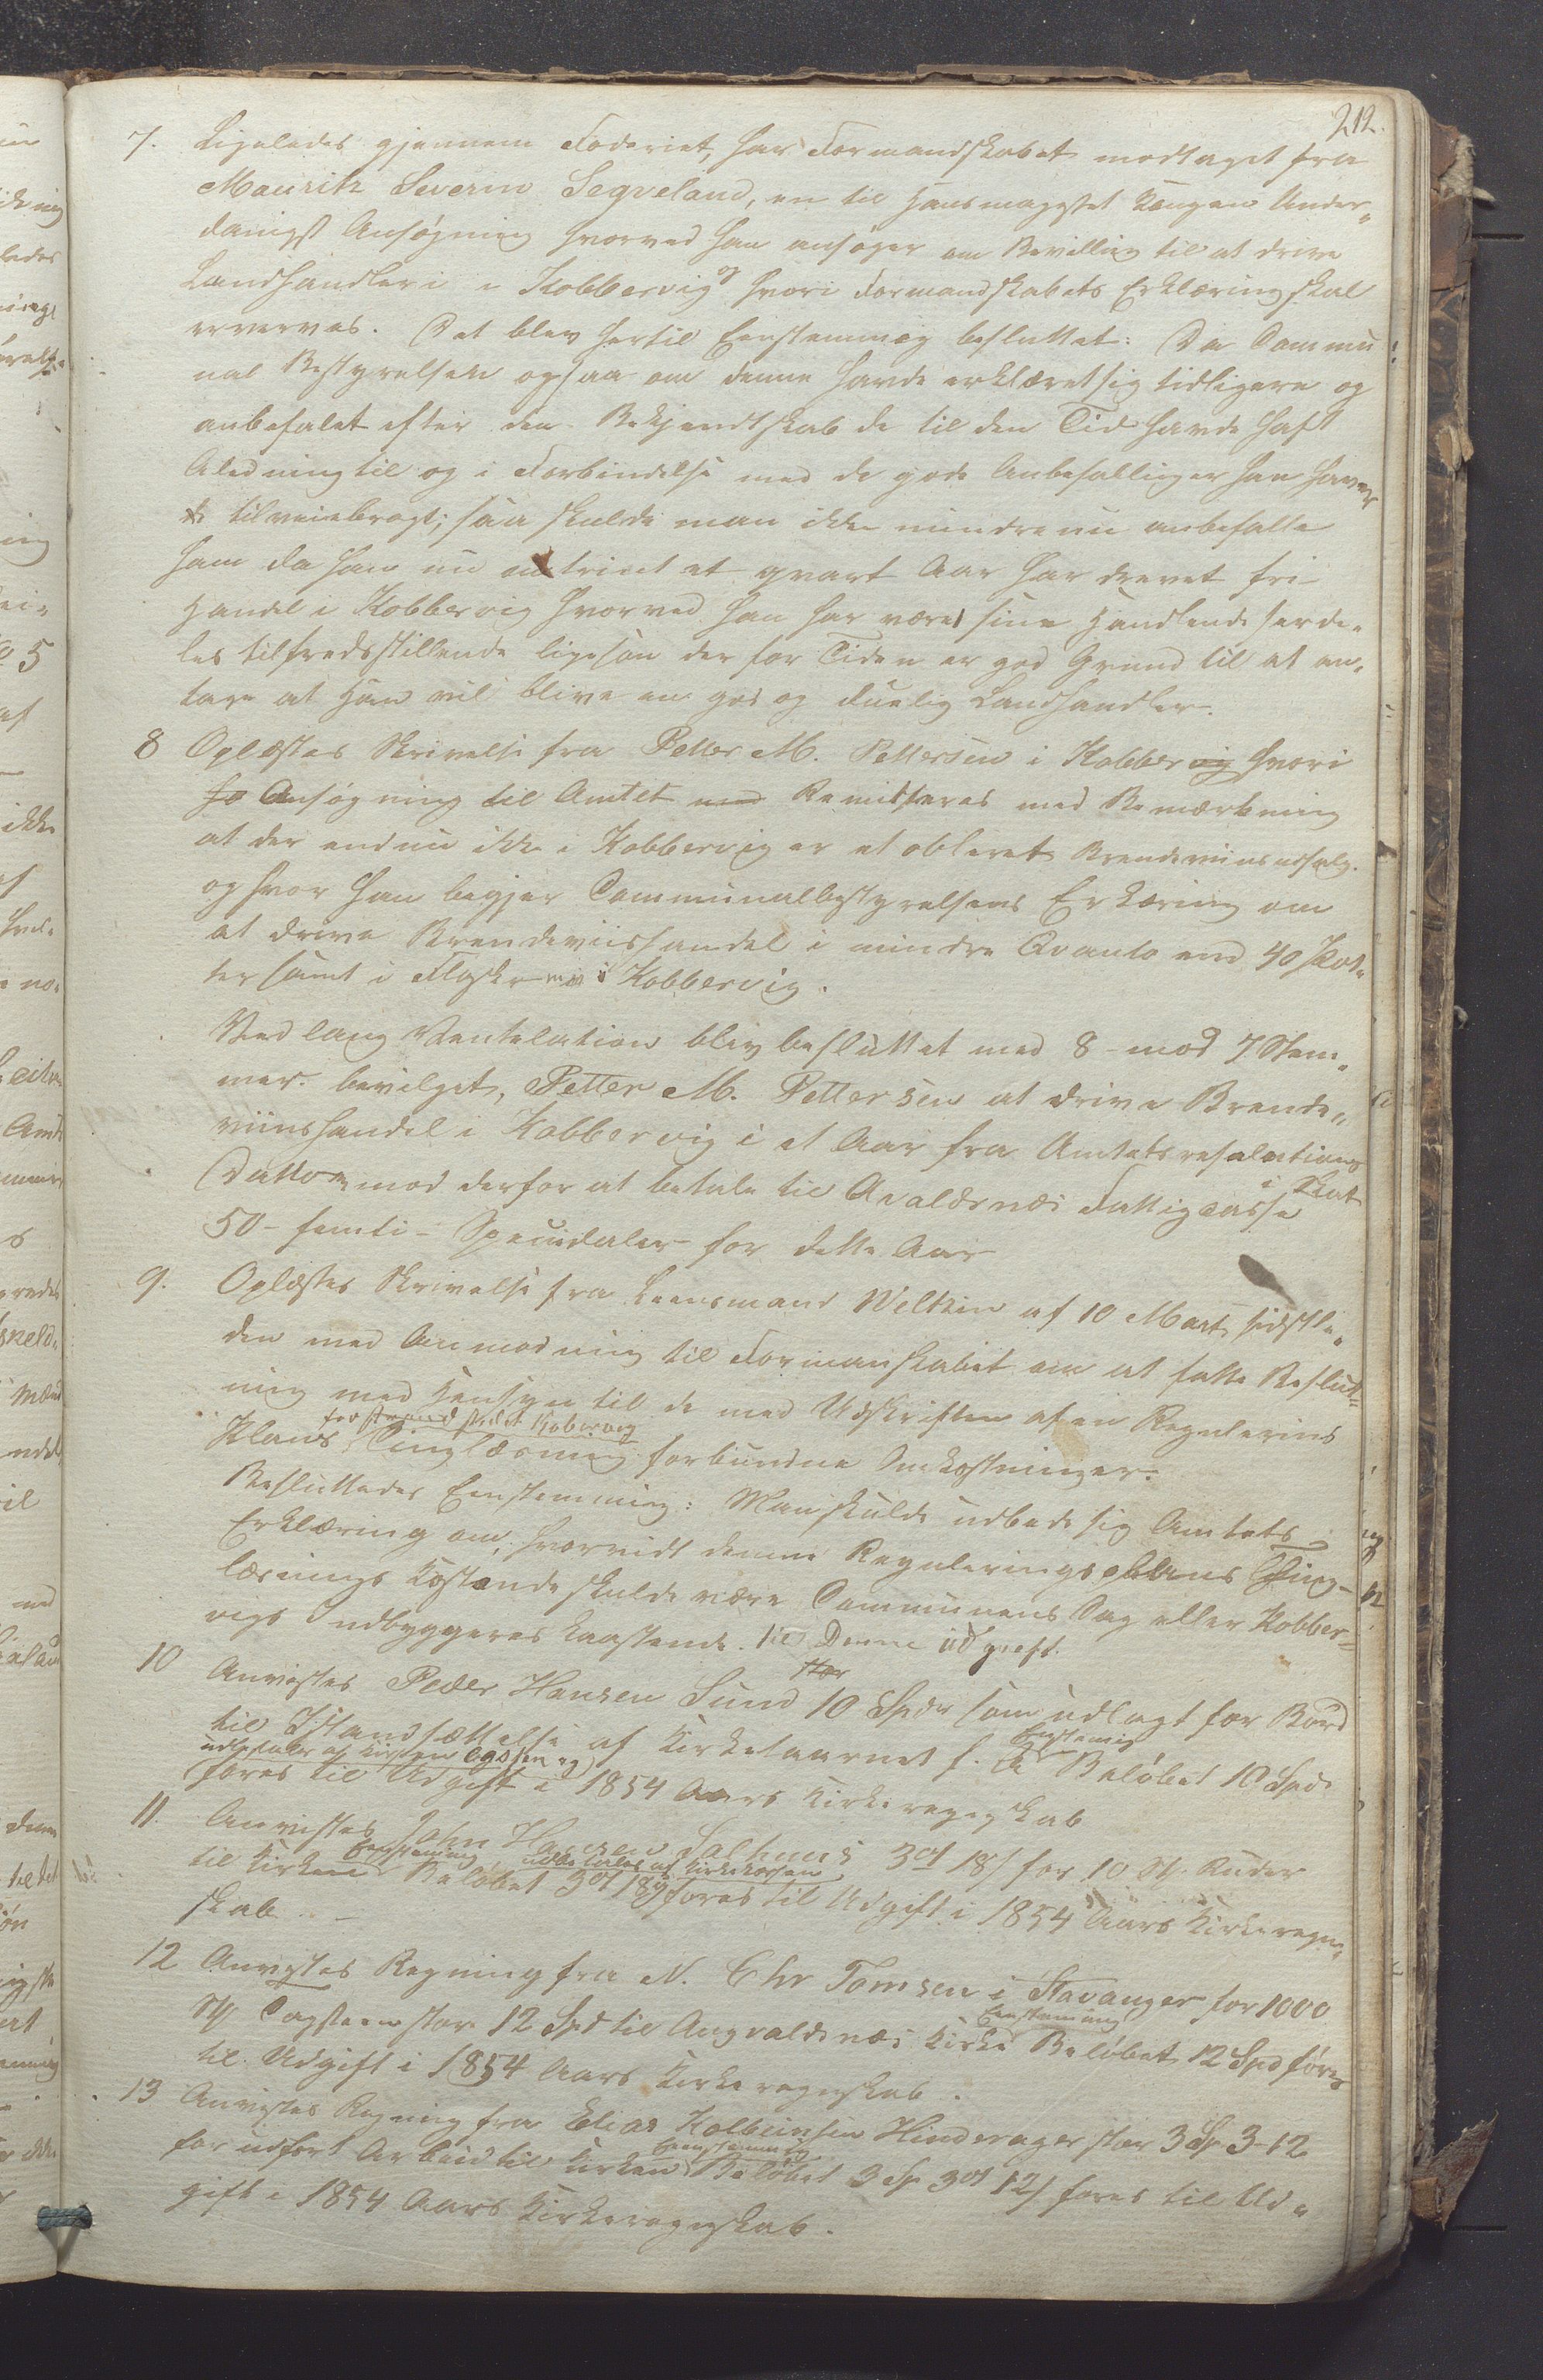 212.
7. Ligeledes gjennem Foderiet, har Formandskabet modtaget fra
Mauritz Severin Seqveland, en til Hans Majestet Kongen Under„
danigst Ansøgning hvorved han ansøger om Bevilling til at drive
Landhandleri i Kobbervig og hvori Formandskabets Erklæring skal
erverves. Det blev hertil Eenstemmig besluttet: Da Commu
nal Bestyrelsen ogsaa om denne havde erklæret sig tidligere og
anbefalet efter den Bekjendtskab de til den Tid havde haft
Aledning til og i Forbindelse med de gode Anbefallinger han haver
tilveiebragt; saa skulde man ikke mindre nu anbefalle
ham da han nu omtrint et qvart Aar har drevet fri
Handel i Kobbervig hvorved han har været sine Handlende særde„
les tilfredsstillende ligesaa der for Tiden er god Grund til at an„
tage at Han vil blive en god og duelig Landhandler.
8 Oplæstes Skrivelse fra Petter M. Pettersen i Kobbervig hvori
Ansøgning til Amtet Remitteres med Bemærkning
at der endnu ikke i Kobbervig er etableret Brendeviinsudsalg.
og hvor han begjer Communalbestyrelsens Erklæring om
at drive Brendeviishandel i mindre Qvanto end 40 Pot„
ter samt i Flasker i Kobbervig.
Ved lang Ventelation blev besluttet med 8 - mod 7 Stem„
mer. bevilget, Petter M. Pettersen at drive Brende„
viinshandel i Kobbervig i et Aar fra Amtets resolutions
Datto mod derfor at betale til Avaldsnæs Fattigcasse i Skat
50 - femti - Speciedaler for dette Aar
9. Oplæstes Skrivelse fra Leensmand Weltzin af 10 Marts sidstle„
den med Anmodning til Formanskabet om at fatte Beslut„
ning med Hensyn til de med Udskriften af en Regulerins
for strandstedet Kobervig
Plans Tinglæsning forbundne Omkostninger.
Besluttedes Eenstemmig: Man skulde udbede sig Amtets
Erklæring om, hvorvidt denne Reguleringsplans Ting-
læsnings Kostende skulde være Communens Sag eller Kobber„
vigs Indbyggeres kaastende. til Denne udgieft.
10 Anvistes Peder Hansen Sund 10 Spdr som udlagt for Bord
til Istandsættelse af Kirketaarnet f. A Eenstemig Beløbet 10 Spd
udbetales af Kirkens Casse og
føres til Udgift i 1854 Aars Kirkeregnskab
11. Anvistes John Hansen Salhuus 3 ort 18 s for 10 St. Ruder
til Kirken Eenstemmig Beløbet 3 ort 18 s udbetales af Kirkekassen føres til Udgift i 1854 Aars Kirkeregn„
skab. -
12 Anvistes Regning fra N. Chr Tomsen i Stavanger for 1000
St Tagsteen stor 12 Spd til Augvaldsnæs Kirke Eenstemmig Beløbet 12 Spd føres
til Udgift i 1854 Aars Kirkeregnskab.
13 Anvistes Regning fra Elias Kolbeinsen Hinderager stor 3 Sp 3-12
for udført Arbeid til Kirken Eenstemmig Beløbet 3 Sp 3 ort 12 s føres til Ud„
gift i 1854 Aars Kirkeregnskab.